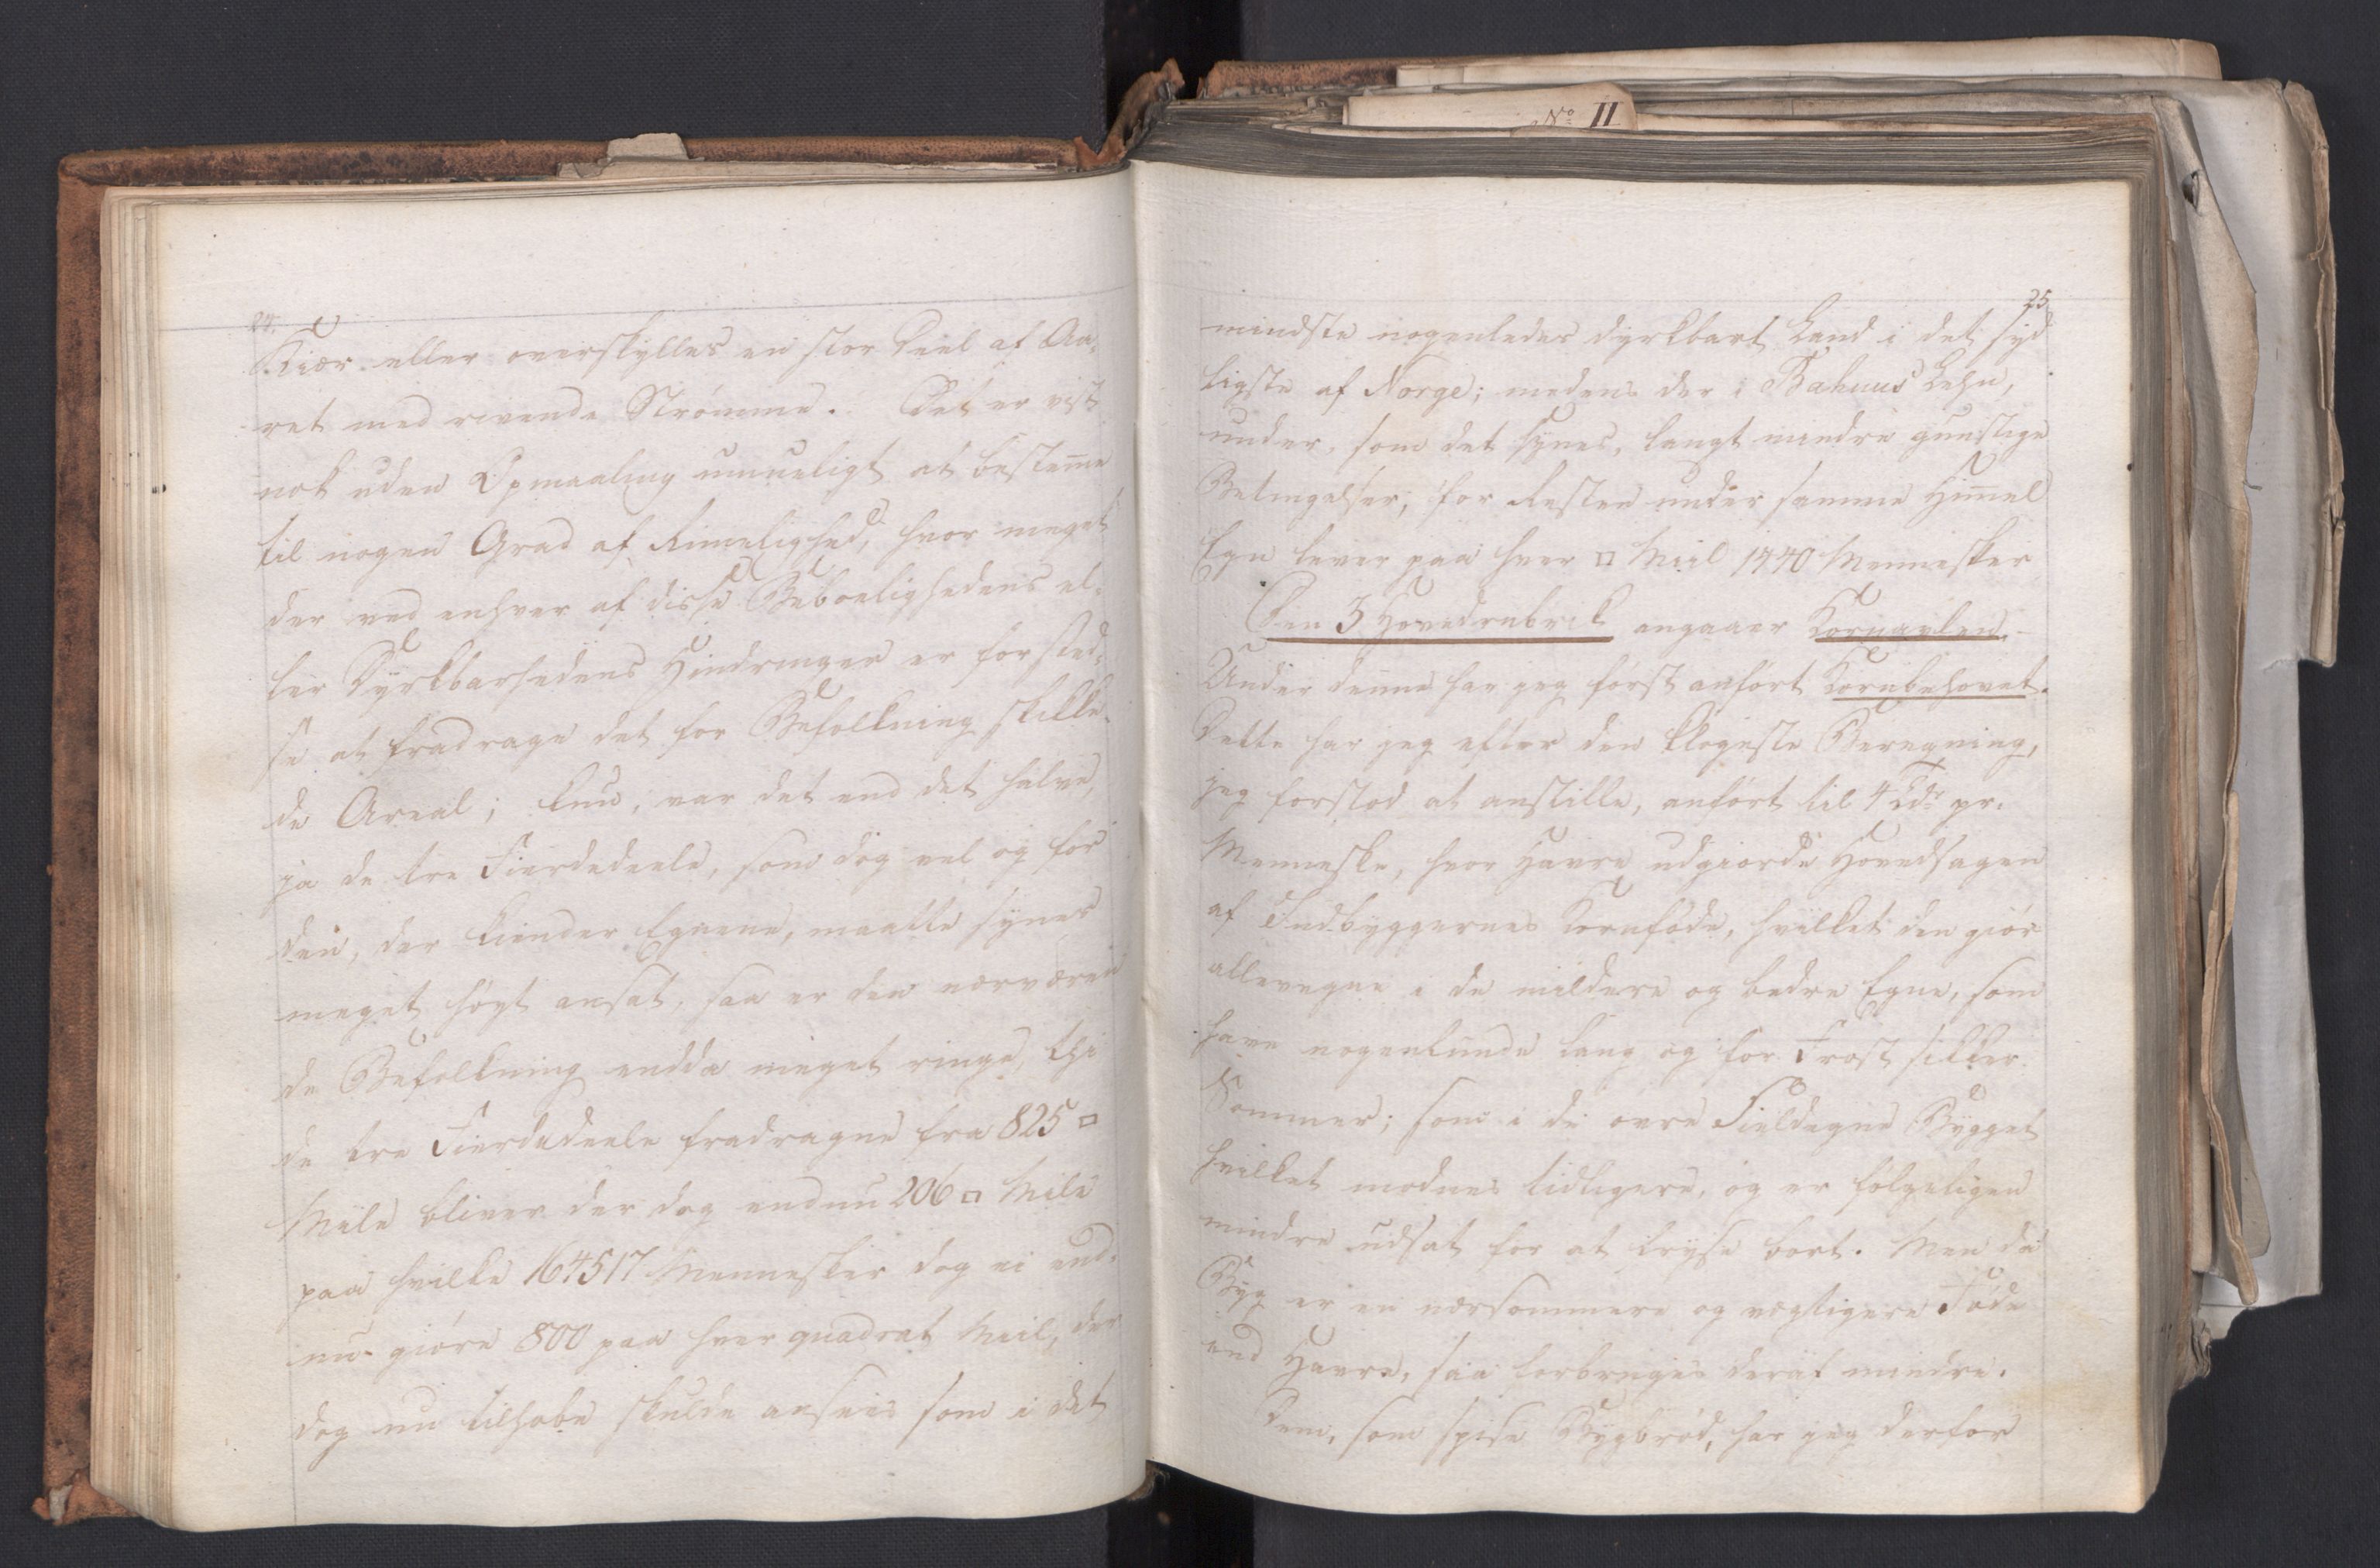 24.
Kiær eller overskylles en stor Deel af Aa-
ret med rivende Strømme. Det er vist
nok uden Opmaaling umueligt at bestem̅e
til nogen Grad af Rimelighed, hvor meget
der ved enhver af disse Beboelighedens el-
ler Dyrkbarhedens Hindringer er for sted-
se at fradrage det for Befolkning skikke-
de Areal; kun, var det end det halve,
ja de tre Fierdedeele, som dog vel og for
den, der kiender Egnene, maatte synes
meget høyt ansat, saa er den nærværen
de Befolkning endda meget ringe, thi
de tre Fierdedeele fradragne fra 825 □
Miile bliver der dog endnu 206 □ Mile
paa hvilke 164517 Mennesker dog ei end-
nu giøre 800 paa hver quadrat Miil, der
dog nu tilhobe skulde ansees som i det
No II
25
mindste nogenledes dyrkbart Land i det syd
ligste af Norge; medens der i Bahuus Lehn,
under, som det synes, langt mindre gunstige
Betingelser, for Resten under samme Him̅el
Egn lever paa hver □ Miil 1440 Mennesker
Den 3 Hovedrubrik angaaer Kornavlen.
Under denne har jeg først anført Kornbehovet.
Dette har jeg efter den klogeste Beregning,
jeg forstod at anstille, anført til 4 Tdr pr.
Menneske, hvor Havre udgiorde Hovedsagen
af Indbyggernes Kornføde, hvilket den giør
allevegne i de mildere og bedre Egne, som
have nogenlunde lang og for Frost sikker
Sommer; som i de øvre Fieldegne Bygget
hvilket modnes tidligere, og er følgeligen
mindre udsat for at fryse bort. Men da
Byg er en nærsommere og vægtigere Føde
end Havre, saa forbruges deraf mindre.
Dem, som spise Bygbrød, har jeg derfor